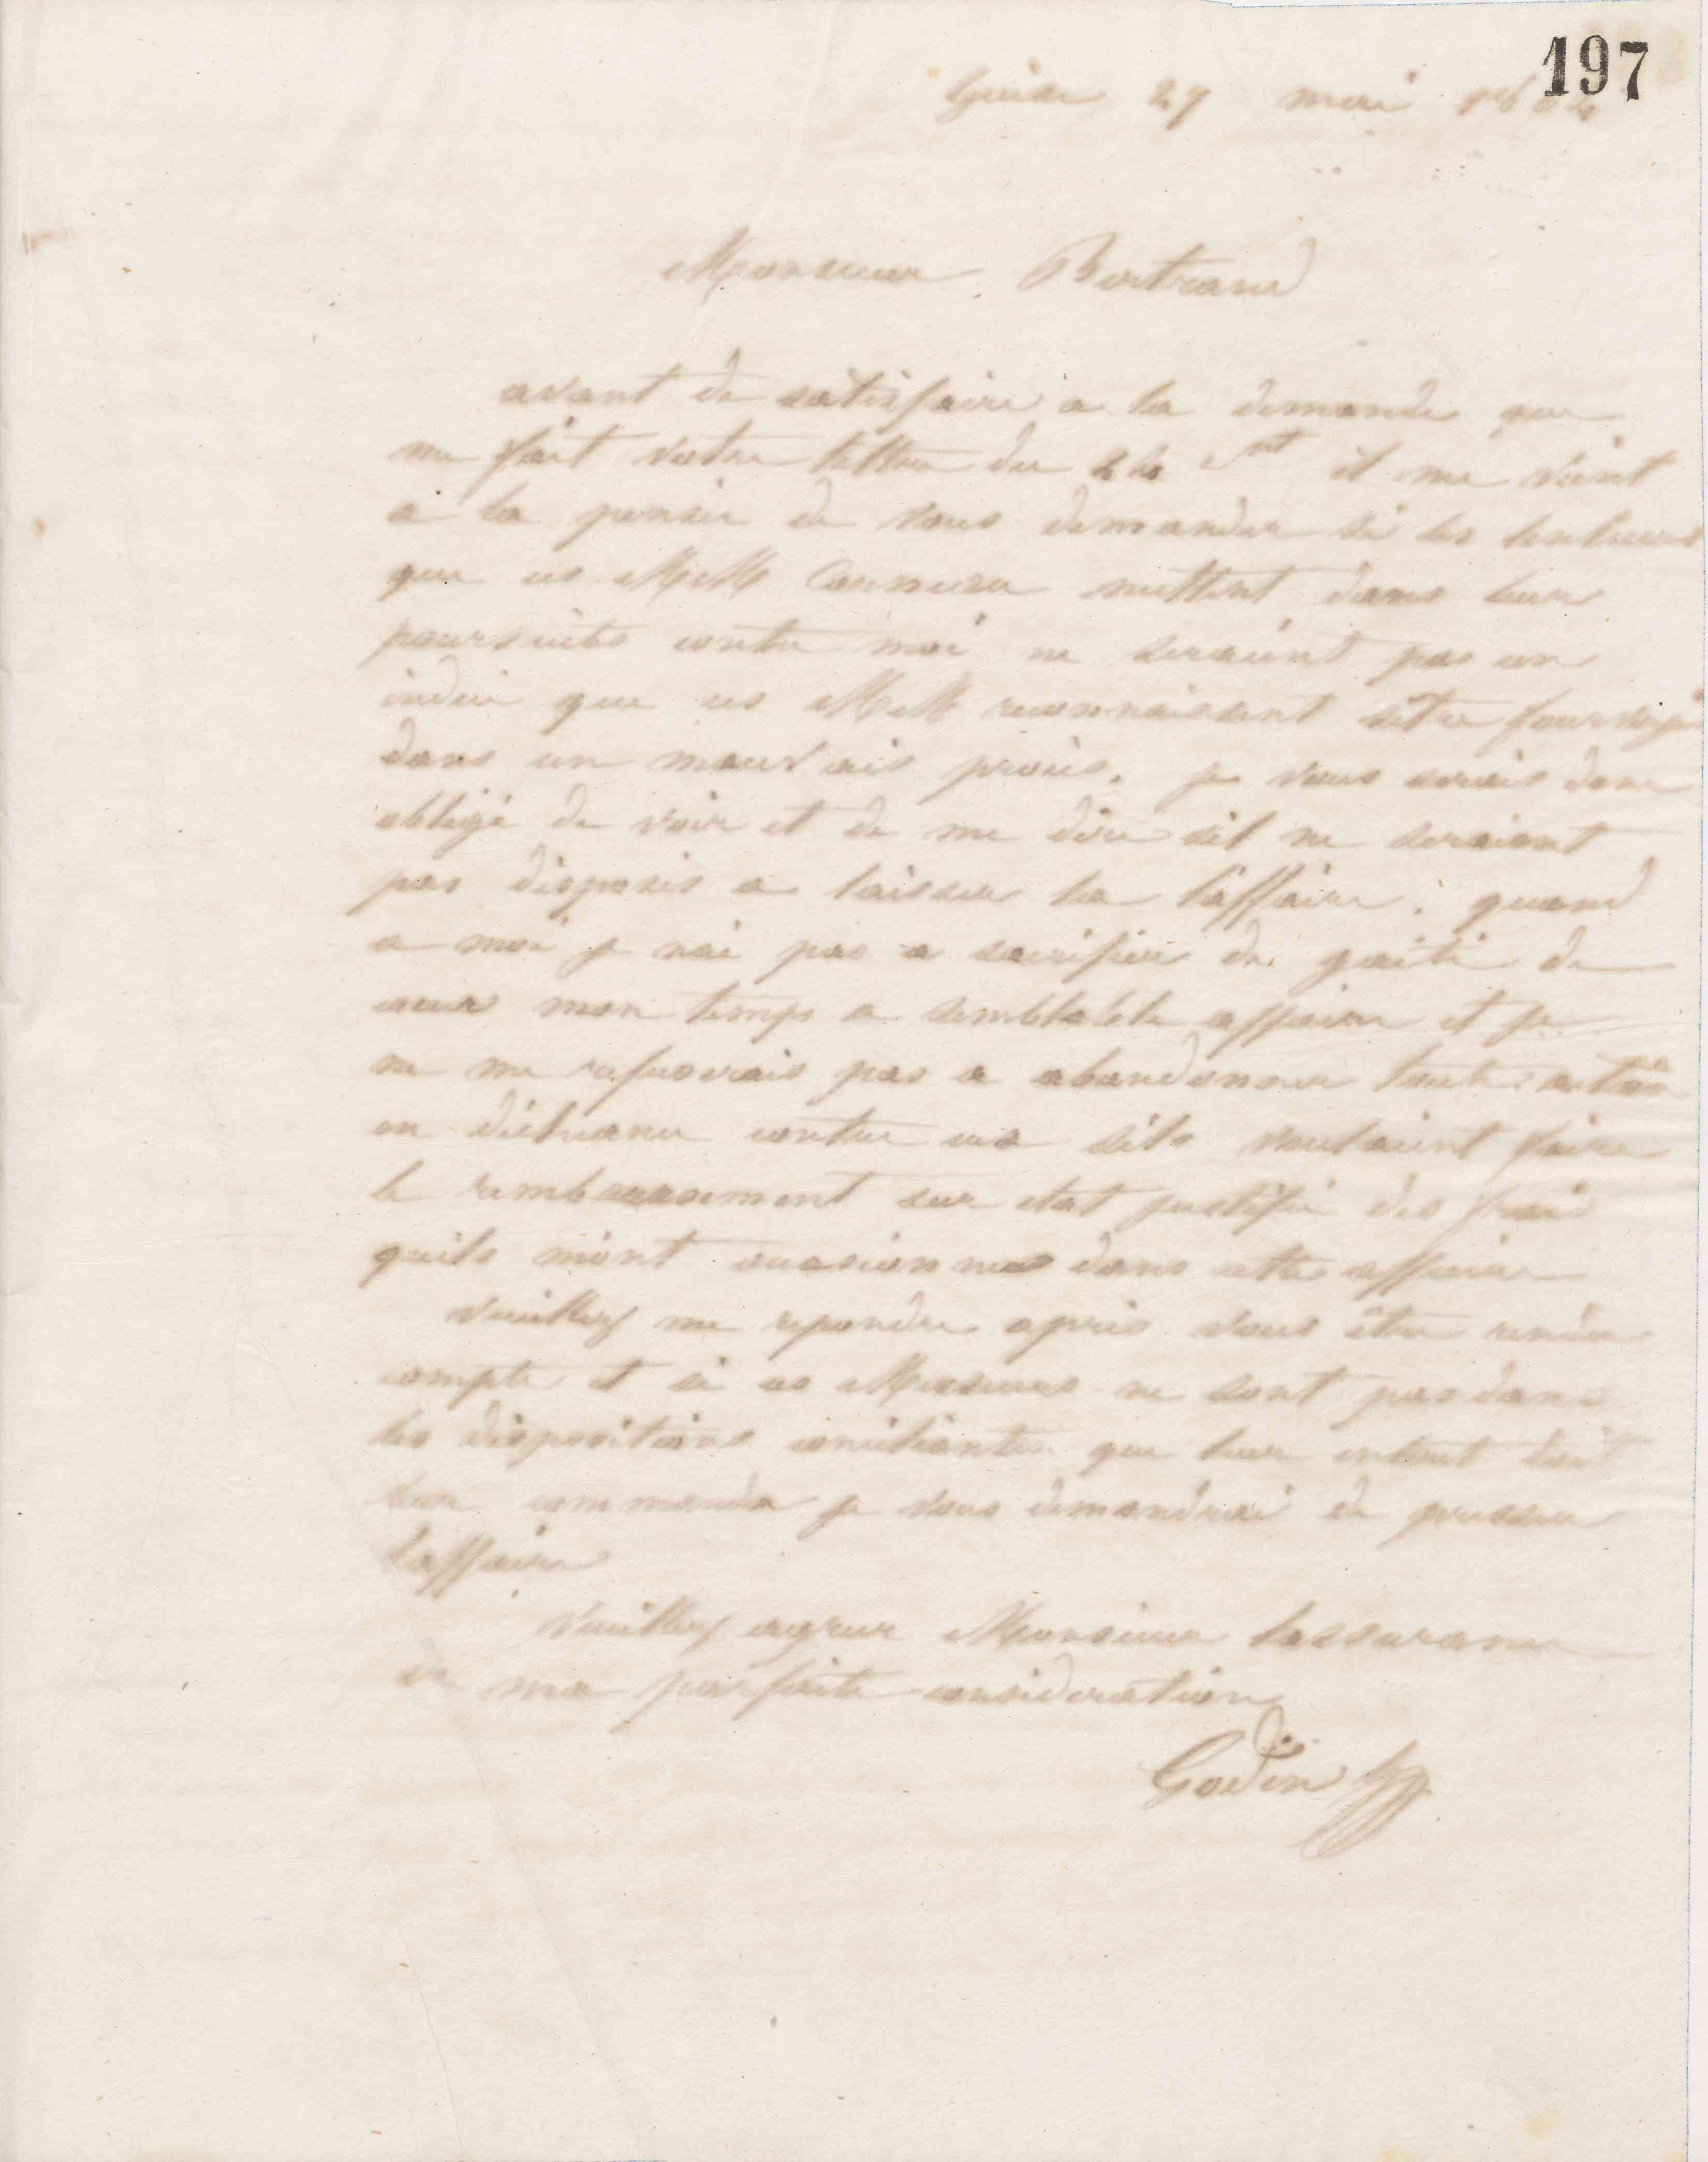 197
Guise 27 mai
Monsieur Bertrand
avant de satisfaire a la demande que
me fait votre lettre du 24 Ct il me vient
a la pensée de vous demander si les lenteurs
que ces MM mettent dans leur
poursuite contre moi ne seraient pas un
indice que ces MM reconnaissent setre fourvoyé
dans un mauvais procès. je vous serais donc
obligé de voir et de me dire sil ne seraient
pas disposés a laisser la l'affaire. quand
a moi je nai pas a sacrifier de gaité de
cœur mon temps a semblable affaire et je
ne me refuserais pas a abandonner toute action
en déchéance contre eux sils voulaient faire
le remboursement sur etat justifié des frais
quils mont occasionnes dans cette affaire
Veuillez me repondre après vous être rendu
compte et si ces Messieurs ne sont pas dans
les dispositions conciliantes que leur interet
leur commande je vous demandrai de presser
laffaire
Veuillez agreer Monsieur lassurance
de ma parfaite consideration
Godin